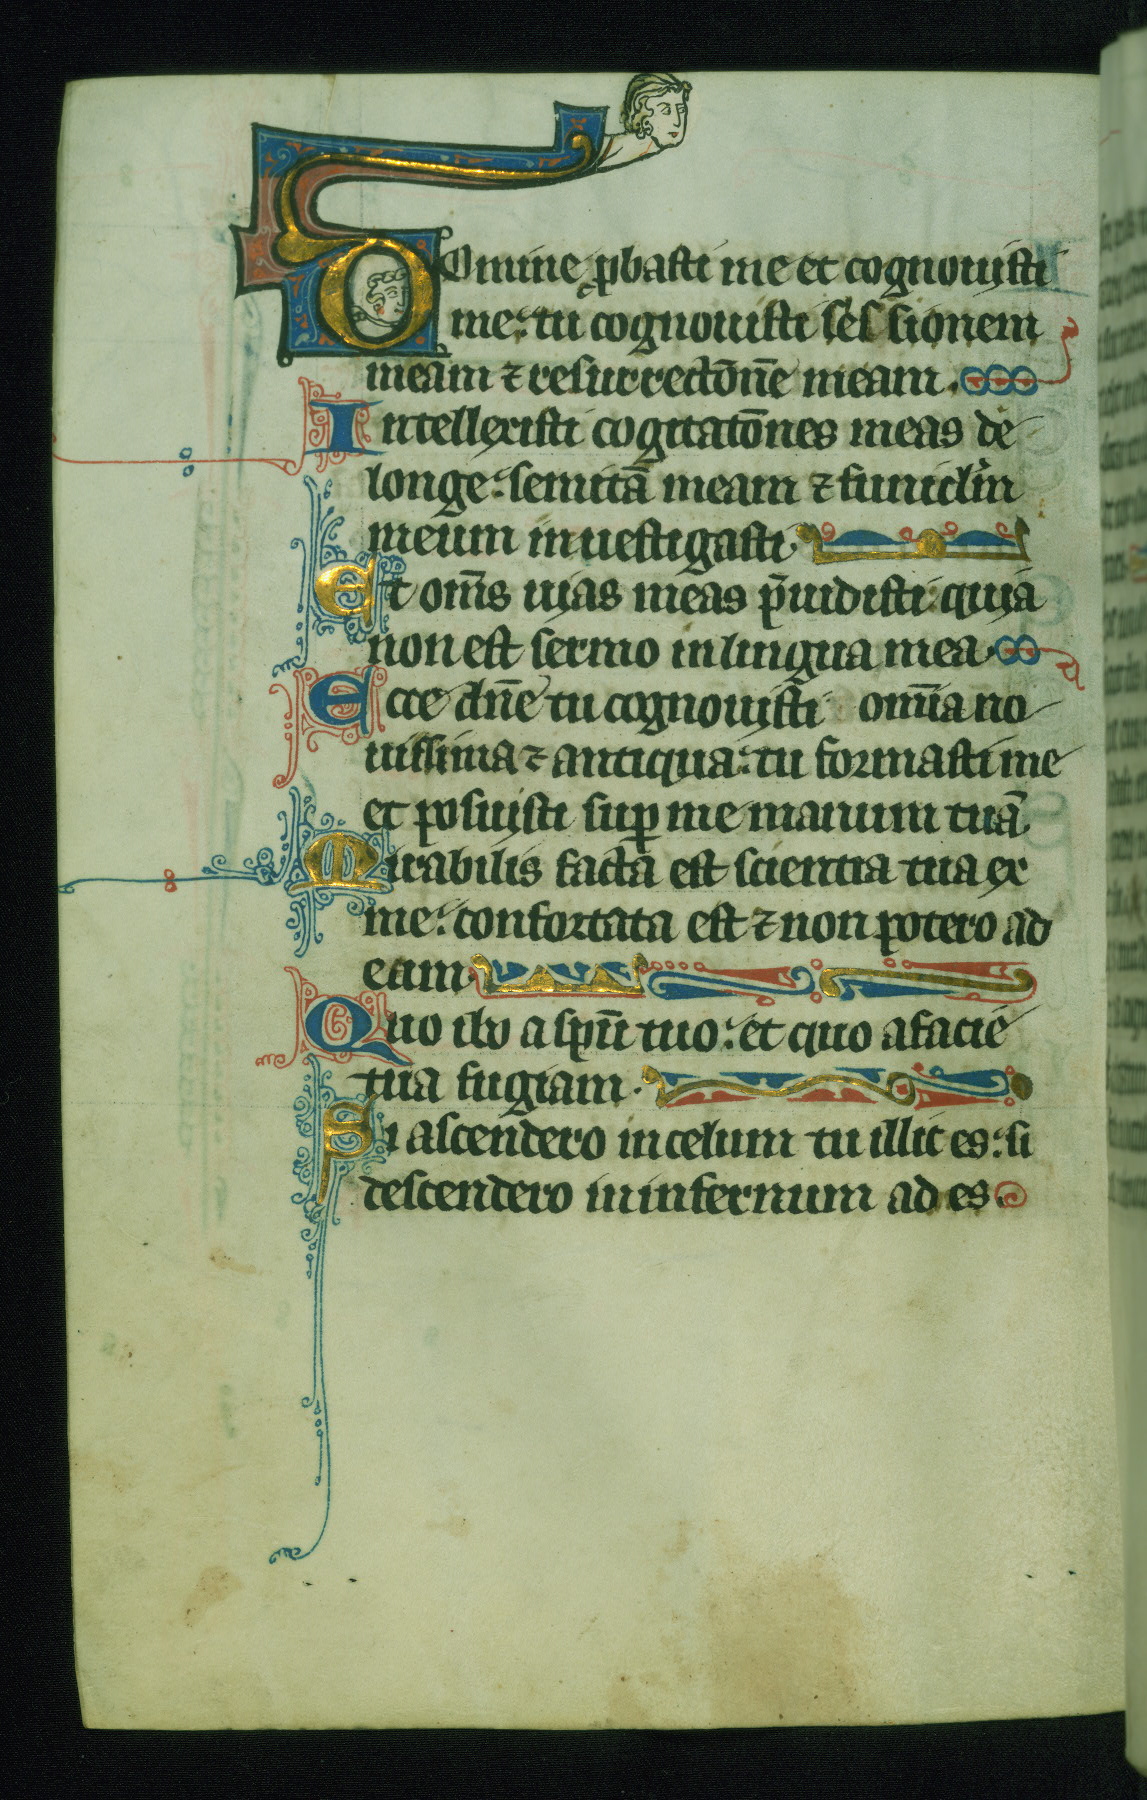 Domine ꝓbasti me et cognouisti
me: tu cognouisti ses sionem
meam ⁊ resurrectōne meam.
Intellexisti cogitatōnes meas de
longe: semitā meam ⁊ funiclm̄
meum inuestigasti.
Et om̄s uias meas p̄uidisti quia
non est sermo in lingua mea.
Ecce dn̄e tu cognouisti om̄ia no
uissima ⁊ antiqua: tu formasti me
et posuisti suꝑ me manum tuā
Mirabilis facta est scientia tua ex
me: confortata est ⁊ non potero ad
eam.
Quo ibo a spū tuo: et quo a facie
tua fugiam.
Si ascendero in celum tu illic es: si
descendero in infernum ad es.